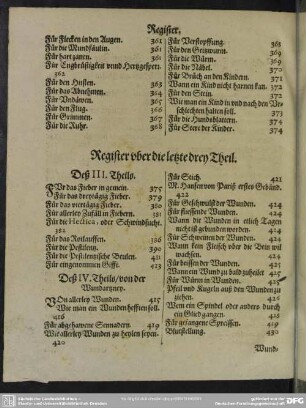 Register.
Für Flecken in den Augen. 361
Für die Mundfäulin. 361
Für hart gären. 361
Für Engbrüstigkeit vnnd Hertzgesper.
362
Für den Husten. 363
Für das Abnehmen. 364
Für Vndäwen. 365
Für den Fluß. 366
Für Grimmen. 367
Für die Ruhr. 368
Für Verstopffung. 368
Für den Geiswarm. 369
Für die Würm. 369
Für die Näbel. 370
Für Brüch an den Kindern. 371
Wann ein Kind nicht harnen kan. 371
Für den Stein. 371
Wie man ein Kind in vnd nach den Ver-
schlechten halten soll. 373
Für die Hundsblatern. 374
Für Seere der Kinder. 374
Register vber die letzte drey Theil.
Deß III. Theils.
Für das Fieber in gemein. 375
Für das dreytägig Fieber. 379
Für das viertägig Fieber. 380
Für allerley Zufäll in Fiebern. 381
Für die Hectica, oder Schwindsucht.
382
Für das Rotlauffen. 386
Für die Pestilentz. 390
Für die Pestilentzische Beulen. 421
Für eingenommen Gifft. 423
Deß IV. Theils/ von der
Wundartzney.
Von allerley Wunden. 425
Wie man ein Wunden hefften soll.
426
Für abgehawene Sennadern. 419
Wie allerley Wunden zu heylen seyen.
420
Für Stich. 421
M. Hansen von Pariß erstes Gebünd.
422
Für Geschwulst der Wunden. 424
Für fliessende Wunden. 424
Wann die Wunden in etlich Tagen
nicht ist gebunden worden. 424
Für Schweinen der Wunden. 424
Wann kein Fleisch vber die Bein wil
wachsen. 424
Für heissen der Wunden. 425
Wann ein Wund zu bald zuheilet 425
Für Würm in Wunden. 425
Pfeil vnd Kugeln auß den Wunden zu
ziehen. 426
Wem ein Spindel oder anders durch
ein Glied gangen. 428
Für gefangene Spreissen. 429
Blutstellung. 430
Wund-